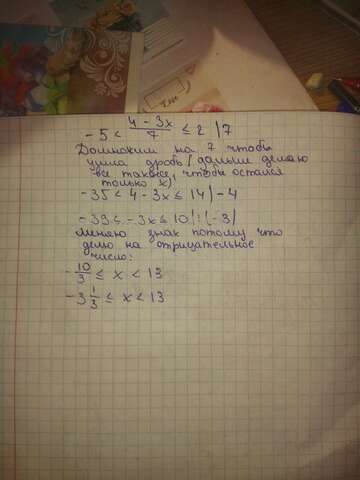 - 5 < (4 - 3x)/7 ≤ 2 | 7
Домножим на 7 чтобы
ушла дробь/дальше делаю
все также, чтобы остался
только x)
- 35 < 4 - 3x ≤ 14 | - 4
- 39 ≤ - 3x ≤ 10 | : (- 3)
Меняю знак потому что
делю на отрицательное
число:
- 10/3 ≤ x < 13
- 3 1/3 ≤ x < 13